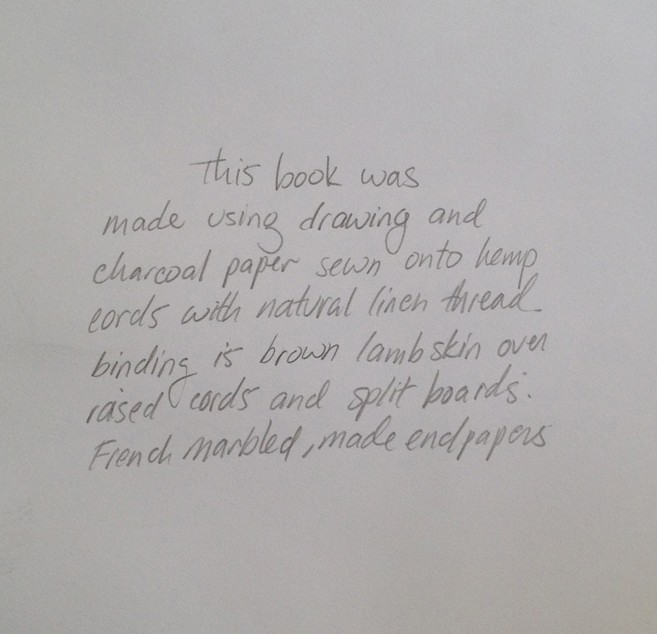 This book was
made using drawing and
charcoal paper sewn onto hemp
cords with natural linen thread
binding is brown lambskin over
raised cords and split boards.
French marbled, made endpapers